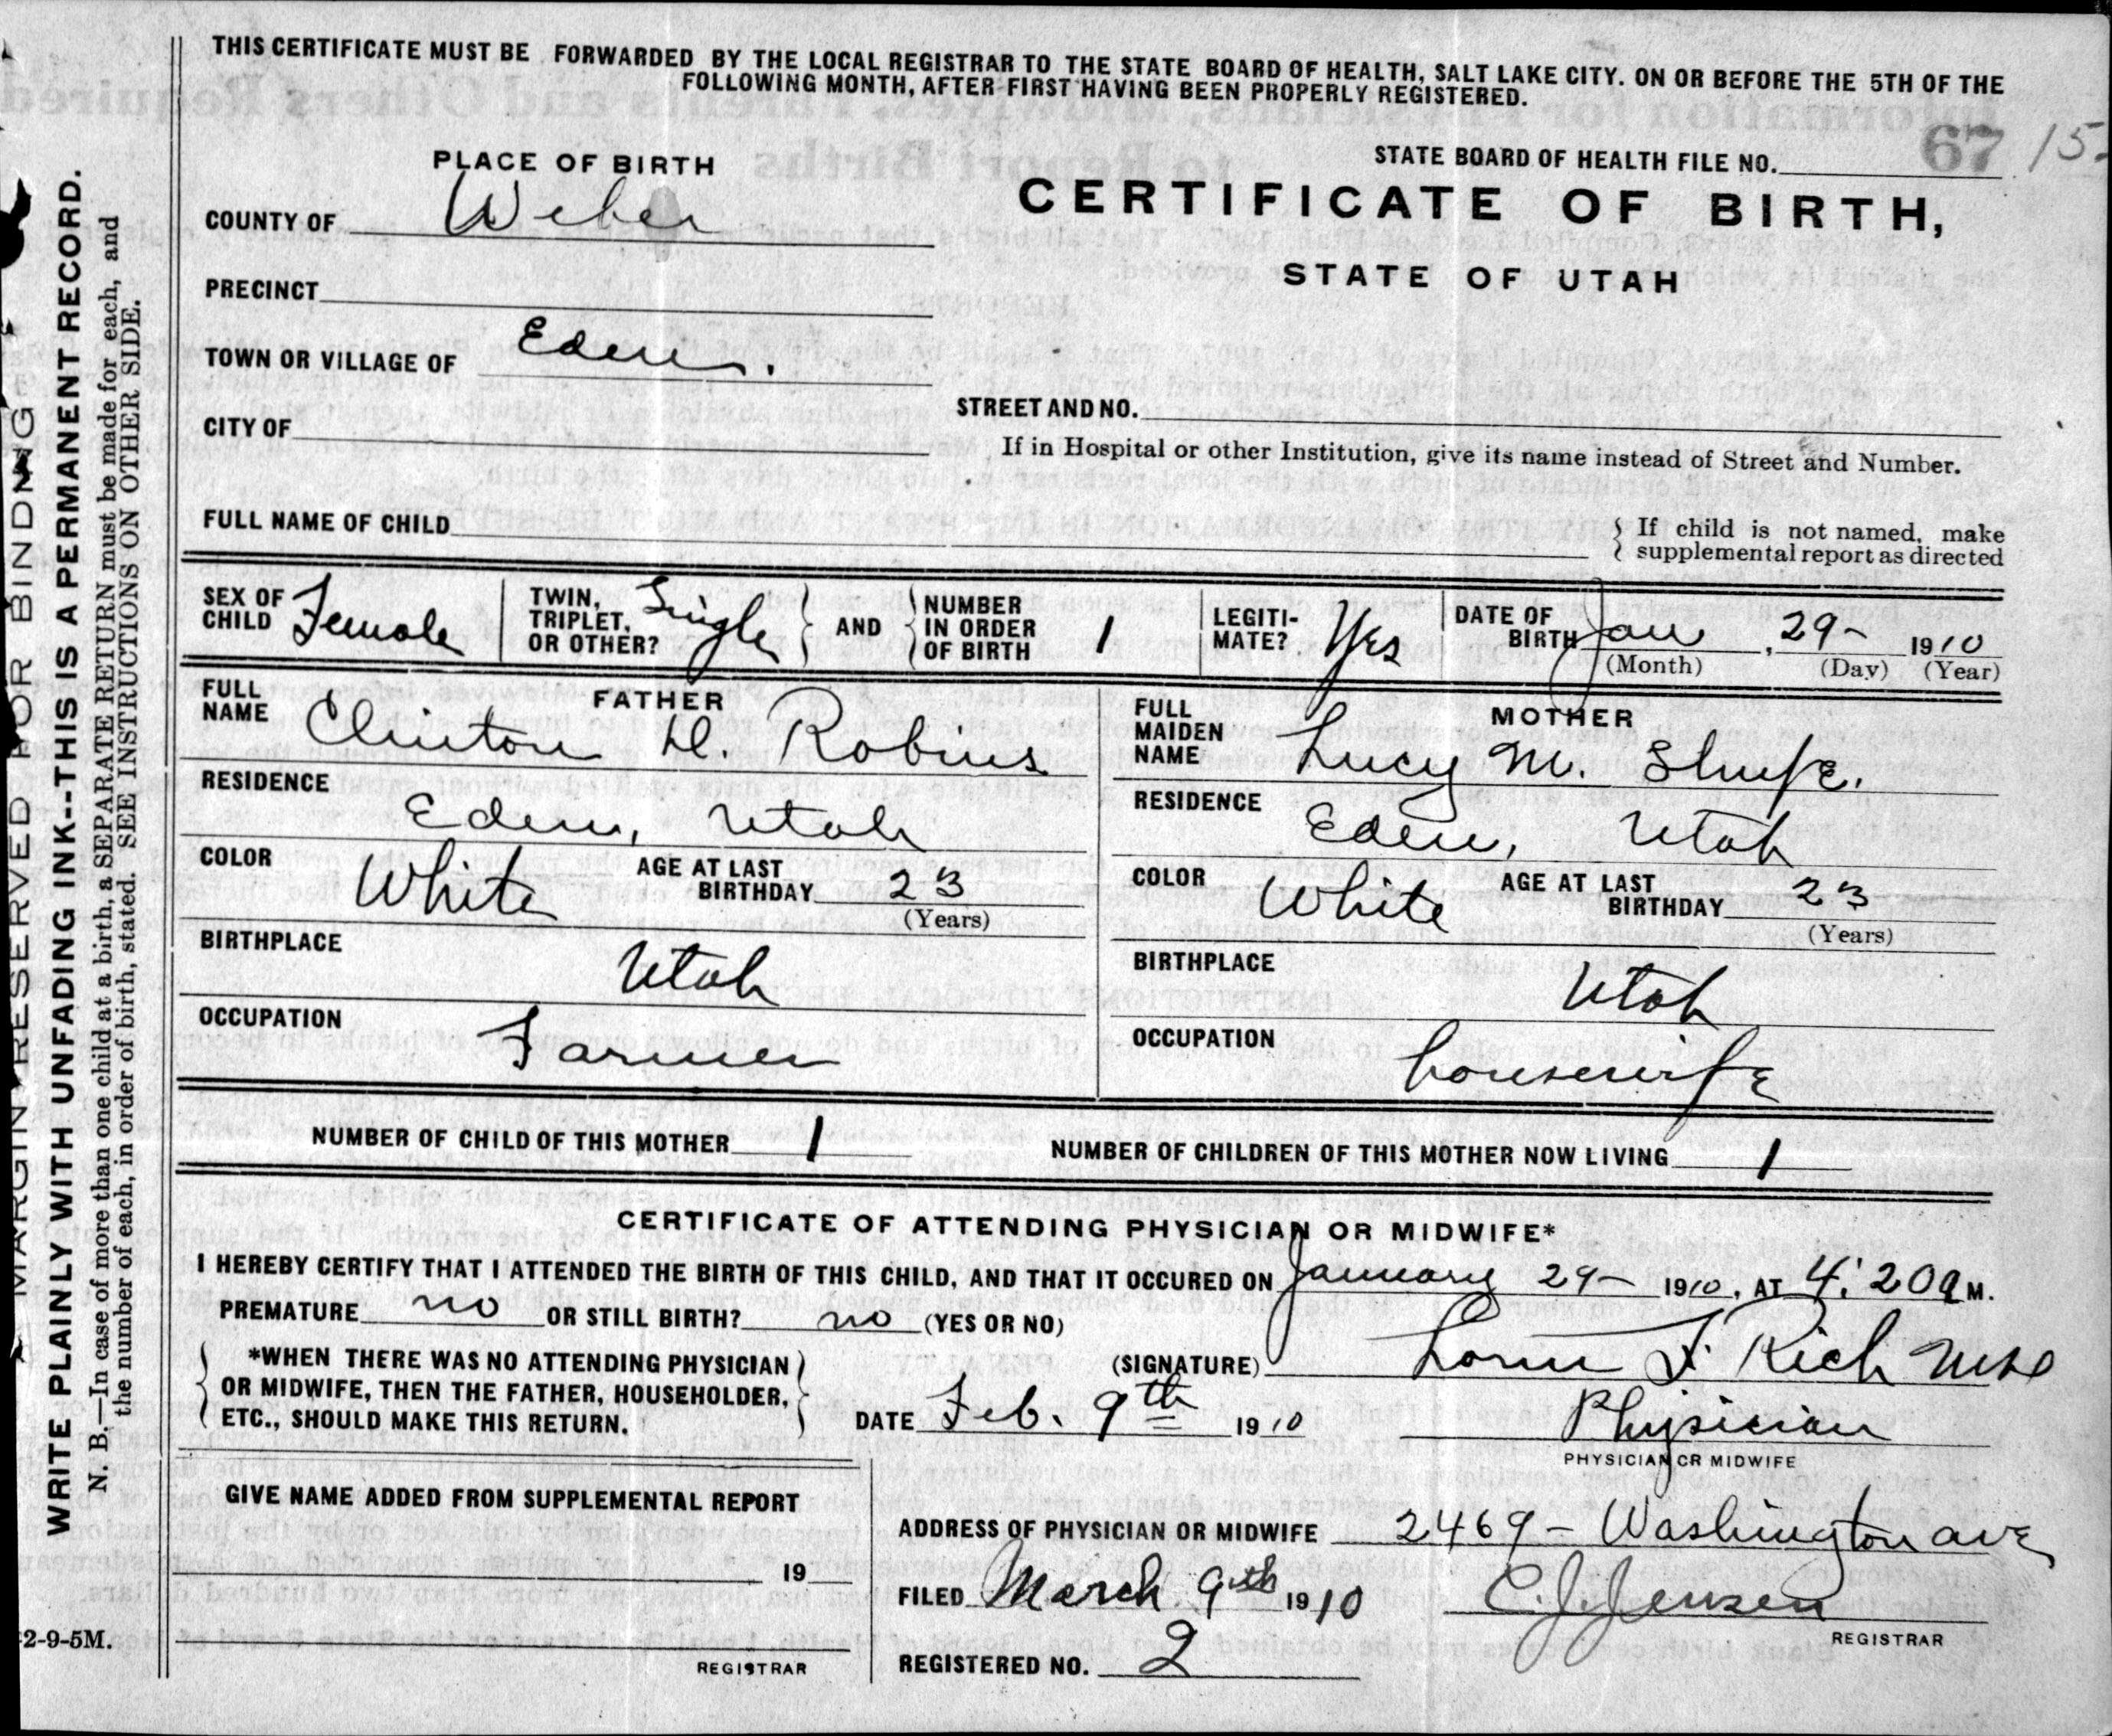 THIS CERTIFICATE MUST BE FORWARDED BY THE LOCAL REGISTRAR TO THE STATE BOARD OF HEALTH, SALT LAKE CITY. ON OR BEFORE THE 5TH OF THE
FOLLOWING MONTH, AFTER FIRST HAVING BEEN PROPERLY REGISTERED.
67 15
PLACE OF BIRTH
STATE BOARD OF HEALTH FILE NO.
COUNTY OF Weber
CERTIFICATE OF BIRTH,
STATE OF UTAH
PRECINCT
TOWN OR VILLAGE OF Eden.
STREET AND NO.
CITY OF
If in Hospital or other Institution, give its name instead of Street and Number.
FULL NAME OF CHILD
{ If child is not named, make
supplemental report as directed
SEX OF CHILD Female
TWIN, TRIPLET, OR OTHER? Single } AND { NUMBER IN ORDER OF BIRTH 1
LEGITI-MATE? Yes
DATE OF BIRTH Jan, 29- 1910
(Month) (Day) (Year)
FATHER
FULL NAME Clinton D. Robins
RESIDENCE
Eden, Utah
COLOR White AGE AT LAST BIRTHDAY 23
(Years)
BIRTHPLACE
Utah
OCCUPATION
Farmer
MOTHER
FULL MAIDEN NAME Lucy M. Shupe.
RESIDENCE
Eden, Utah
COLOR White AGE AT LAST BIRTHDAY 23
(Years)
BIRTHPLACE
Utah
OCCUPATION
housewife
NUMBER OF CHILD OF THIS MOTHER 1 NUMBER OF CHILDREN OF THIS MOTHER NOW LIVING 1
CERTIFICATE OF ATTENDING PHYSICIAN OR MIDWIFE*
I HEREBY CERTIFY THAT I ATTENDED THE BIRTH OF THIS CHILD, AND THAT IT OCCURED ON January 29- 1910, AT 4:20 a M.
PREMATURE no OR STILL BIRTH? no (YES OR NO)
{ *WHEN THERE WAS NO ATTENDING PHYSICIAN }
OR MIDWIFE, THEN THE FATHER, HOUSEHOLDER,
ETC., SHOULD MAKE THIS RETURN.
(SIGNATURE) F. Rich
DATE Feb. 9th 1910
Physician
PHYSICIAN OR MIDWIFE
GIVE NAME ADDED FROM SUPPLEMENTAL REPORT
19
REGISTRAR
ADDRESS OF PHYSICIAN OR MIDWIFE 2469- Washington ave
FILED March 9th 1910 C. J. Jensen
REGISTRAR
REGISTERED NO. 2
MARGIN RESERVED FOR BINDING
WRITE PLAINLY WITH UNFADING INK--THIS IS A PERMANENT RECORD.
N. B.—In case of more than one child at a birth, a SEPARATE RETURN must be made for each, and
the number of each, in order of birth, stated. SEE INSTRUCTIONS ON OTHER SIDE.
2-9-5M.